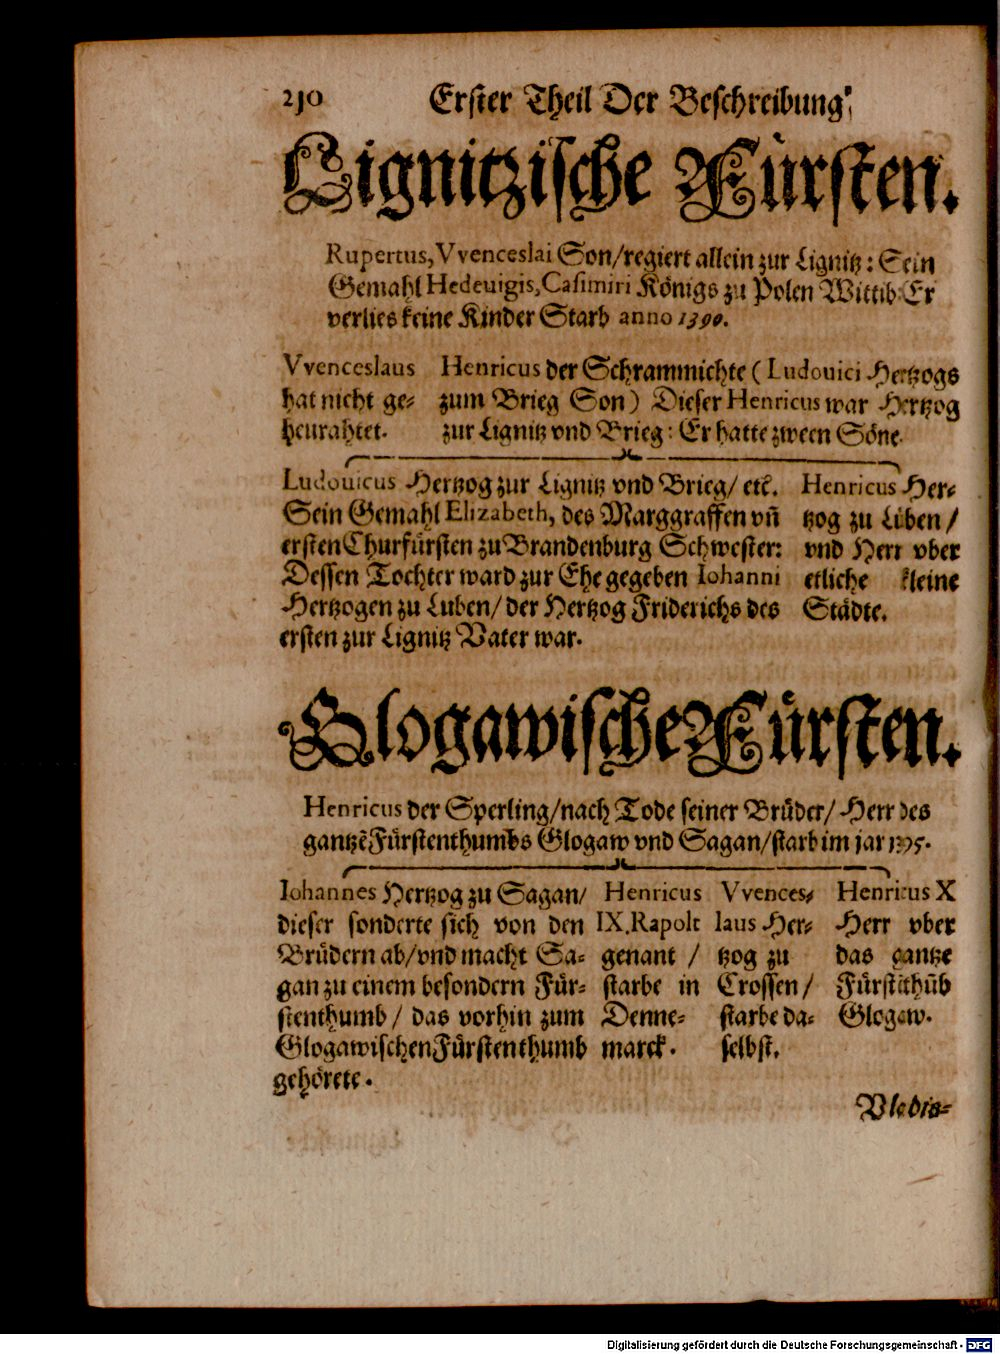 230 Erster Theil Der Beschreibung,
Lignitzische Fürsten.
Rupertus, VVenceslai Son/regiert allein zur Lignitz: Sein
Gemahl Hedeuigis, Casimiri Königs zu Polen Wittib: Er
verlies keine Kinder Starb anno 1390.
VVenceslaus
hat nicht ge-
heurahtet.
Henricus der Schrammichte (Ludouici Hertzogs
zum Brieg Son) Dieser Henricus war Hertzog
zur Lignitz vnd Brieg: Er hatte zween Söne.
Ludouicus Hertzog zur Lignitz vnd Brieg/ etc.
Sein Gemahl Elizabeth, des Marggraffen vn̄
ersten Churfürsten zu Brandenburg Schwester:
Dessen Tochter ward zur Ehe gegeben Iohanni
Hertzogen zu Luben/ der Hertzog Friderichs des
ersten zur Lignitz Vater war.
Henricus Her-
tzog zu Lüben/
vnd Herr vber
etliche kleine
Städte.
Glogawische Fürsten.
Henricus der Sperling/nach Tode seiner Brüder/ Herr des
gantzē Fürstenthumbs Glogaw vnd Sagan/starb im jar 1395.
Iohannes Hertzog zu Sagan/
dieser sonderte sich von den
Brüdern ab/vnd macht Sa-
gan zu einem besondern Für-
stenthumb/ das vorhin zum
Glogawischen Fürstenthumb
gehörete.
Henricus
IX. Rapolt
genant /
starbe in
Denne-
marck.
VVences-
laus Her-
tzog zu
Crossen/
starbe da-
selbst.
Henricus X
Herr vber
das gantze
Fürstēthūb
Glogaw.
Vladis-
Digitalisierung gefördert durch die Deutsche Forschungsgemeinschaft - DFG